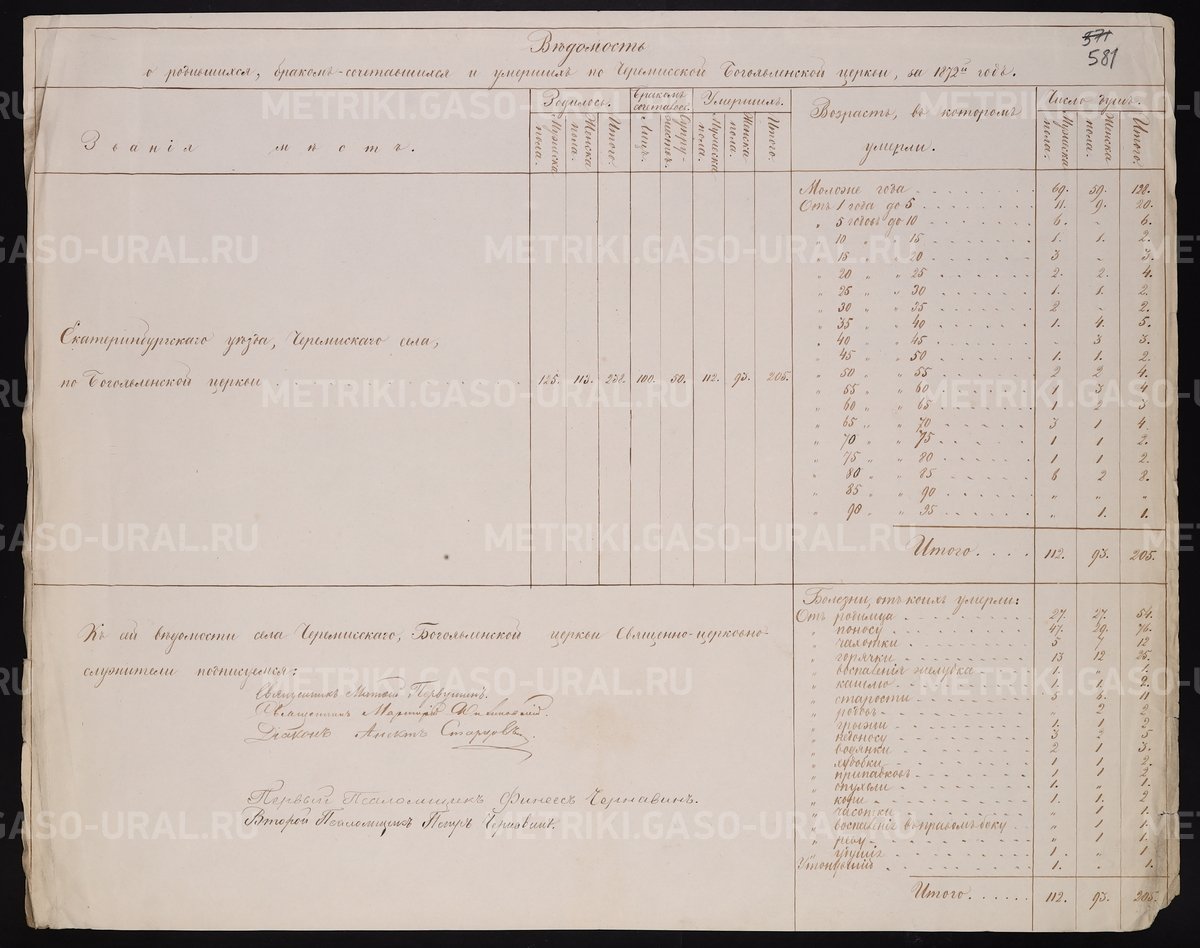 571
581
Вѣдомость
о родившихся, бракомъ-сочетавшихся и умершихъ по Черемисской Богоявленской церкви, за 1872й годъ.
Званія мѣстъ.
Родилось.
Мужеска пола.
Женска пола.
Итого.
Бракомъ сочеталось.
Лицъ.
Супружествъ.
Умершихъ.
Мужеска пола.
Женска пола.
Итого.
Возрастъ, въ которомъ
умерли.
Число душъ.
Мужеска пола.
Женска пола.
Итого.
Екатеринбургскаго уѣзда, Черемискаго села,
по Богоявленской церкви 125. 113. 238. 100. 50. 112. 93. 205.
Моложе года 69. 59. 128.
Отъ 1 года до 5 11. 9. 20.
„ 5 годовъ до 10 6. - 6.
„ 10 „ „ 15 1. 1. 2.
„ 15 „ „ 20 3 - 3.
„ 20 „ „ 25 2. 2. 4.
„ 25 „ „ 30 1. 1. 2.
„ 30 „ „ 35 2 - 2.
„ 35 „ „ 40 1. 4. 5.
„ 40 „ „ 45 - 3 3.
„ 45 „ „ 50 1. 1. 2.
„ 50 „ „ 55 2 2 4.
„ 55 „ „ 60 1 3 4
„ 60 „ „ 65 1 2 3
„ 65 „ „ 70 3 1 4.
„ 70 „ „ 75 1 1 2.
„ 75 „ „ 80 1 1 2.
„ 80 „ „ 85 6 2 8.
„ 85 „ „ 90 „ „ „
„ 90 „ „ 95 „ 1. 1.
Итого 112. 93. 205.
Къ сей вѣдомости села Черемисскаго, Богоявленской церкви Священно-церковно-
служители подписуемся:
Священникъ Матѳей Первушинъ.
Священникъ
Діаконъ Старцовъ.
Первый Псаломщикъ Финеесъ Чернавинъ.
Второй Псаломщикъ Петръ
Болезни, отъ коихъ умерли:
Отъ родимца 27. 27 54.
„ поносу 47. 29. 76.
„ чахотки 5 7 12
„ горячки 13 12 25.
„ воспаленія желудка 1. „ 1.
„ кашлю 1 1 2.
„ старости 5 6. 11
„ родовъ „ 2 2
„ грыжи 1. 1 2
„ недоносу 3 2 5
„ водянки 2 1 3.
„ 1 1 2.
„ припадковъ 1 1 2
„ опухоли 1. „ 1.
„ кори 1. 1. 2
„ чесотки „ 1 1.
„ воспаленія въ правомъ боку „ 1 1.
„ „ 1 1.
„ 1 „ 1
Утонувшій 1. - 1.
Итого 112. 93. 205.
METRIKI.GASO-URAL.RU